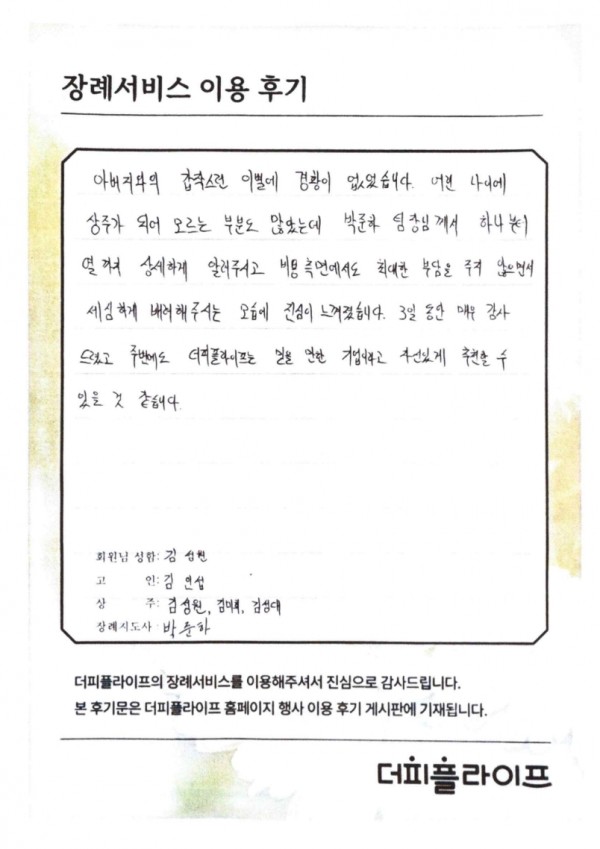 장례서비스 이용 후기
아버지와의 갑작스런 이별에 경황이 없었습니다. 어린 나이에
상주가 되어 모르는 부분도 많았는데 박준하 팀장님께서 하나부터
열까지 상세하게 알려주시고 비용측면에서도 최대한 부담을 주지 않으면서
세심하게 배려해주시는 모습에 진심이 느껴졌습니다. 3일 동안 매우 감사
드렸고 주변에도 더피플라이프는 믿을 만한 기업이라고 자신있게 추천할 수
있을 것 같습니다.
회원님 성함: 김성원
고 인: 김
상 주: 김성원, 김성대
장례지도사: 박준하
더피플라이프의 장례서비스를 이용해주셔서 진심으로 감사드립니다.
본 후기문은 더피플라이프 홈페이지 행사 이용 후기 게시판에 기재됩니다.
더피플라이프